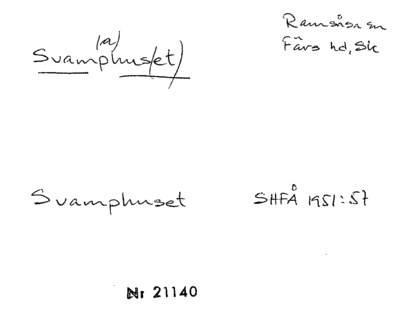 Ramsåsa sn
Färs hd, Sk
(a)
Svamphus(et)
Svamphuset SHFÅ 1951:57
Nr 21140